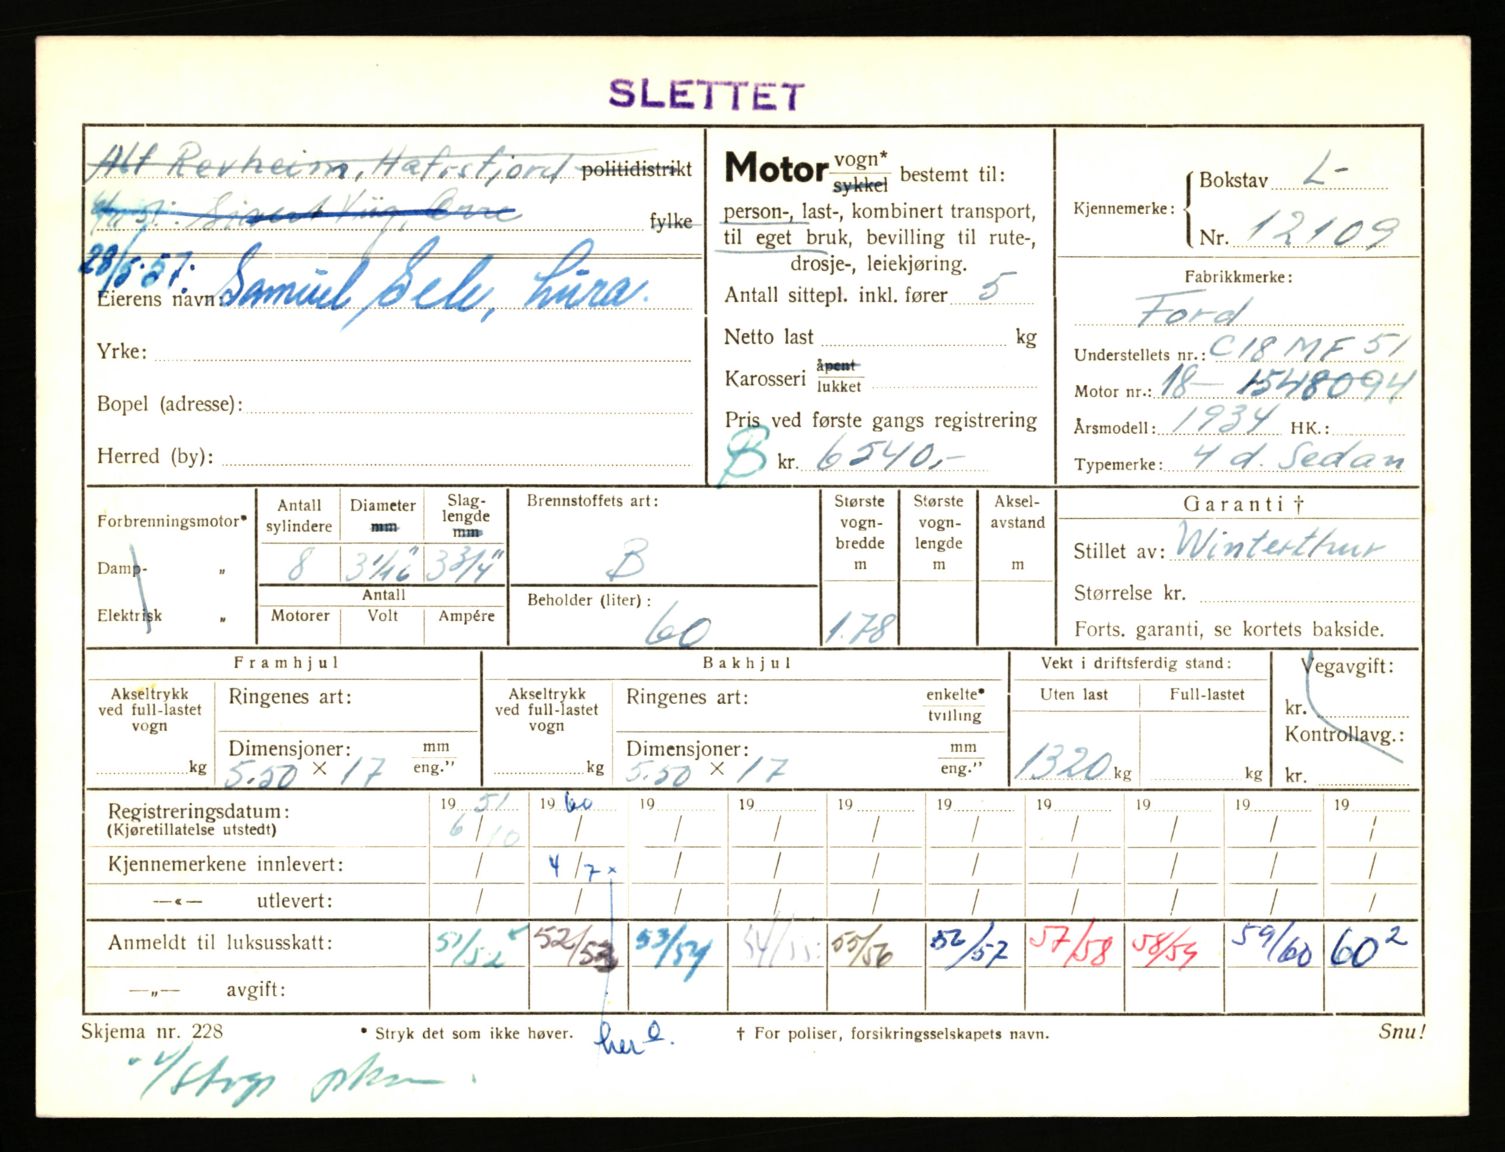 SLETTET
Alf Revheim, Hafrsfjord politidistrikt
fylke
28/5.57:
Eierens navn: Samuel Sele, Lura.
Yrke:
Bopel (adresse):
Herred (by):
Motor vogn* sykkel bestemt til:
person-, last-, kombinert transport,
til eget bruk, bevilling til rute-,
drosje-, leiekjøring.
Antall sittepl. inkl. fører 5
Netto last kg
Karosseri åpent lukket
Pris ved første gangs registrering
B kr. 6540,-
Kjennemerke: Bokstav L-
Nr. 12109
Fabrikkmerke:
Ford
Understellets nr.: C18 MF 51
Motor nr.: 18- 1548094
Årsmodell: 1934 HK.:
Typemerke: 4 d. Sedan
Forbrenningsmotor*
Damp- „
Elektrisk „
Antall sylindere
8
Diameter mm
3 1/16"
Slaglengde mm
3 3/4"
Antall
Motorer Volt Ampére
Brennstoffets art:
B
Beholder (liter):
60
Største vognbredde m
1.78
Største vognlengde m
Akselavstand m
Garanti †
Stillet av: Winterthur
Størrelse kr.
Forts. garanti, se kortets bakside.
Framhjul
Akseltrykk ved full-lastet vogn
kg
Ringenes art:
Dimensjoner: mm eng.”
5.50 × 17
Bakhjul
Akseltrykk ved full-lastet vogn
kg
Ringenes art: enkelte* tvilling
Dimensjoner: mm eng.”
5.50 × 17
Vekt i driftsferdig stand:
Uten last Full-lastet
1320 kg kg
Vegavgift:
kr.
Kontrollavg.:
kr.
Registreringsdatum: 19 51 19 60 19 19 19 19 19 19 19 19
(Kjøretillatelse utstedt) 6/10 / / / / / / / / /
Kjennemerkene innlevert: / 4/7 × / / / / / / / /
—«— utlevert: / / / / / / / / / /
Anmeldt til luksusskatt: 51/52 52/53 53/54 54/55 55/56 56/57 57/58 58/59 59/60 60²
—„— avgift:
Skjema nr. 228 * Stryk det som ikke høver. her † For poliser, forsikringsselskapets navn. Snu!